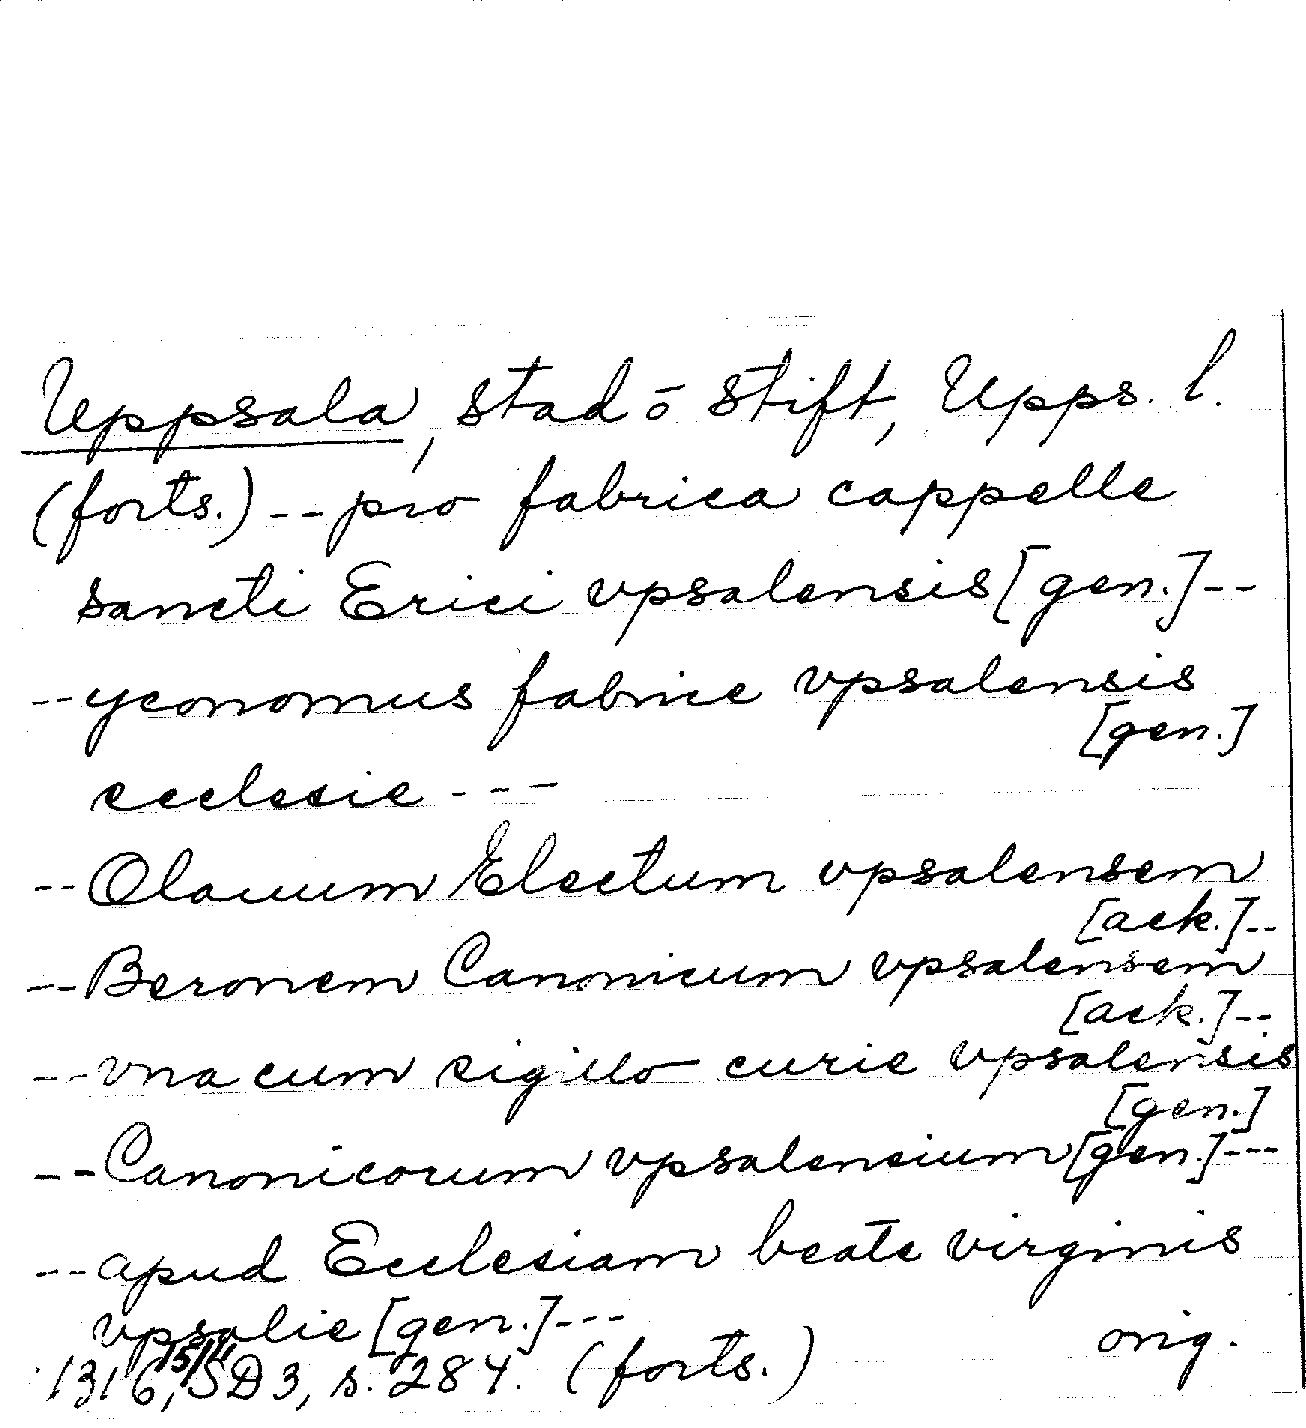 Uppsala, stad o stift, Upps. l.
(forts.) -- pro fabrica cappelle
sancti Erici vpsalensis [gen.] --
-- yconomus fabrice vpsalensis
[gen.]
ecclesie ---
-- Olauum Electum vpsalensem
[ack.] --
-- Beronem Canonicum vpsalensem
[ack.] --
-- vna cum sigillo curie vpsalensis
[gen.]
-- Canonicorum vpsalensium [gen.] ---
-- apud Ecclesiam beate virginis
vpsalie [gen.] ---
orig.
1316, 15/4 SD 3, s. 284. (forts.)